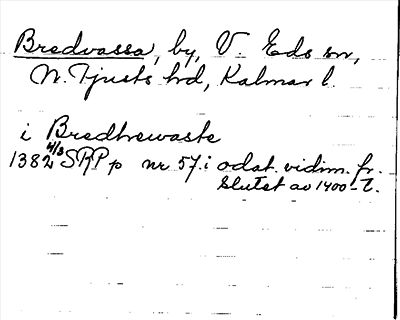 Bredvassa, by, V. Eds sn,
N. Tjusts hd, Kalmar l.
i Bredhewaste
1382 4/3 SRP p nr 57. i odat. vidim. fr.
slutet av 1400-t.